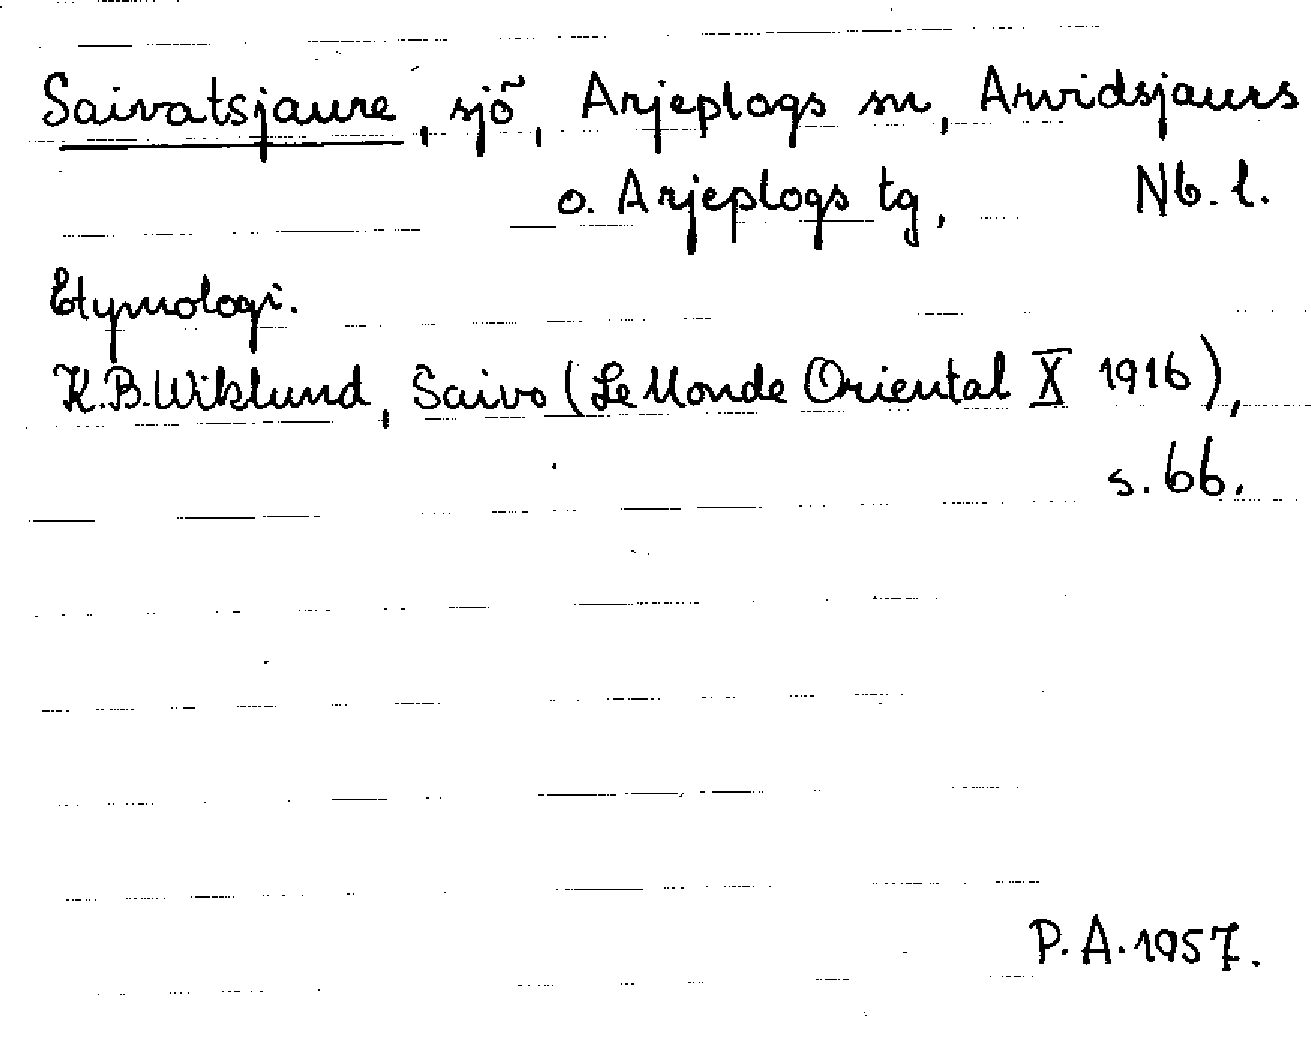 Saivatsjaure, sjö, Arjeplogs sn, Arvidsjaurs
o. Arjeplogs tg, Nb. l.
Etymologi.
K.B. Wiklund, Saivo (Le Monde Oriental X 1916),
s. 66.
P. A. 1957.